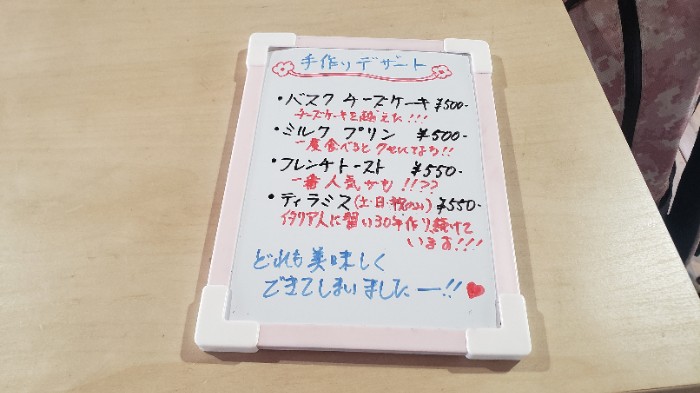 手作りデザート
・バスクチーズケーキ ¥500-
チーズケーキを越えた!!!
・ミルクプリン ¥500-
一度食べるとクセになる!!
・フレンチトースト ¥550-
一番人気かも!!??
・ティラミス(土・日・祝のみ) ¥550-
イタリア人に習い30年作り続けて
います!!!
どれも美味しく
できてしまいましたー!!